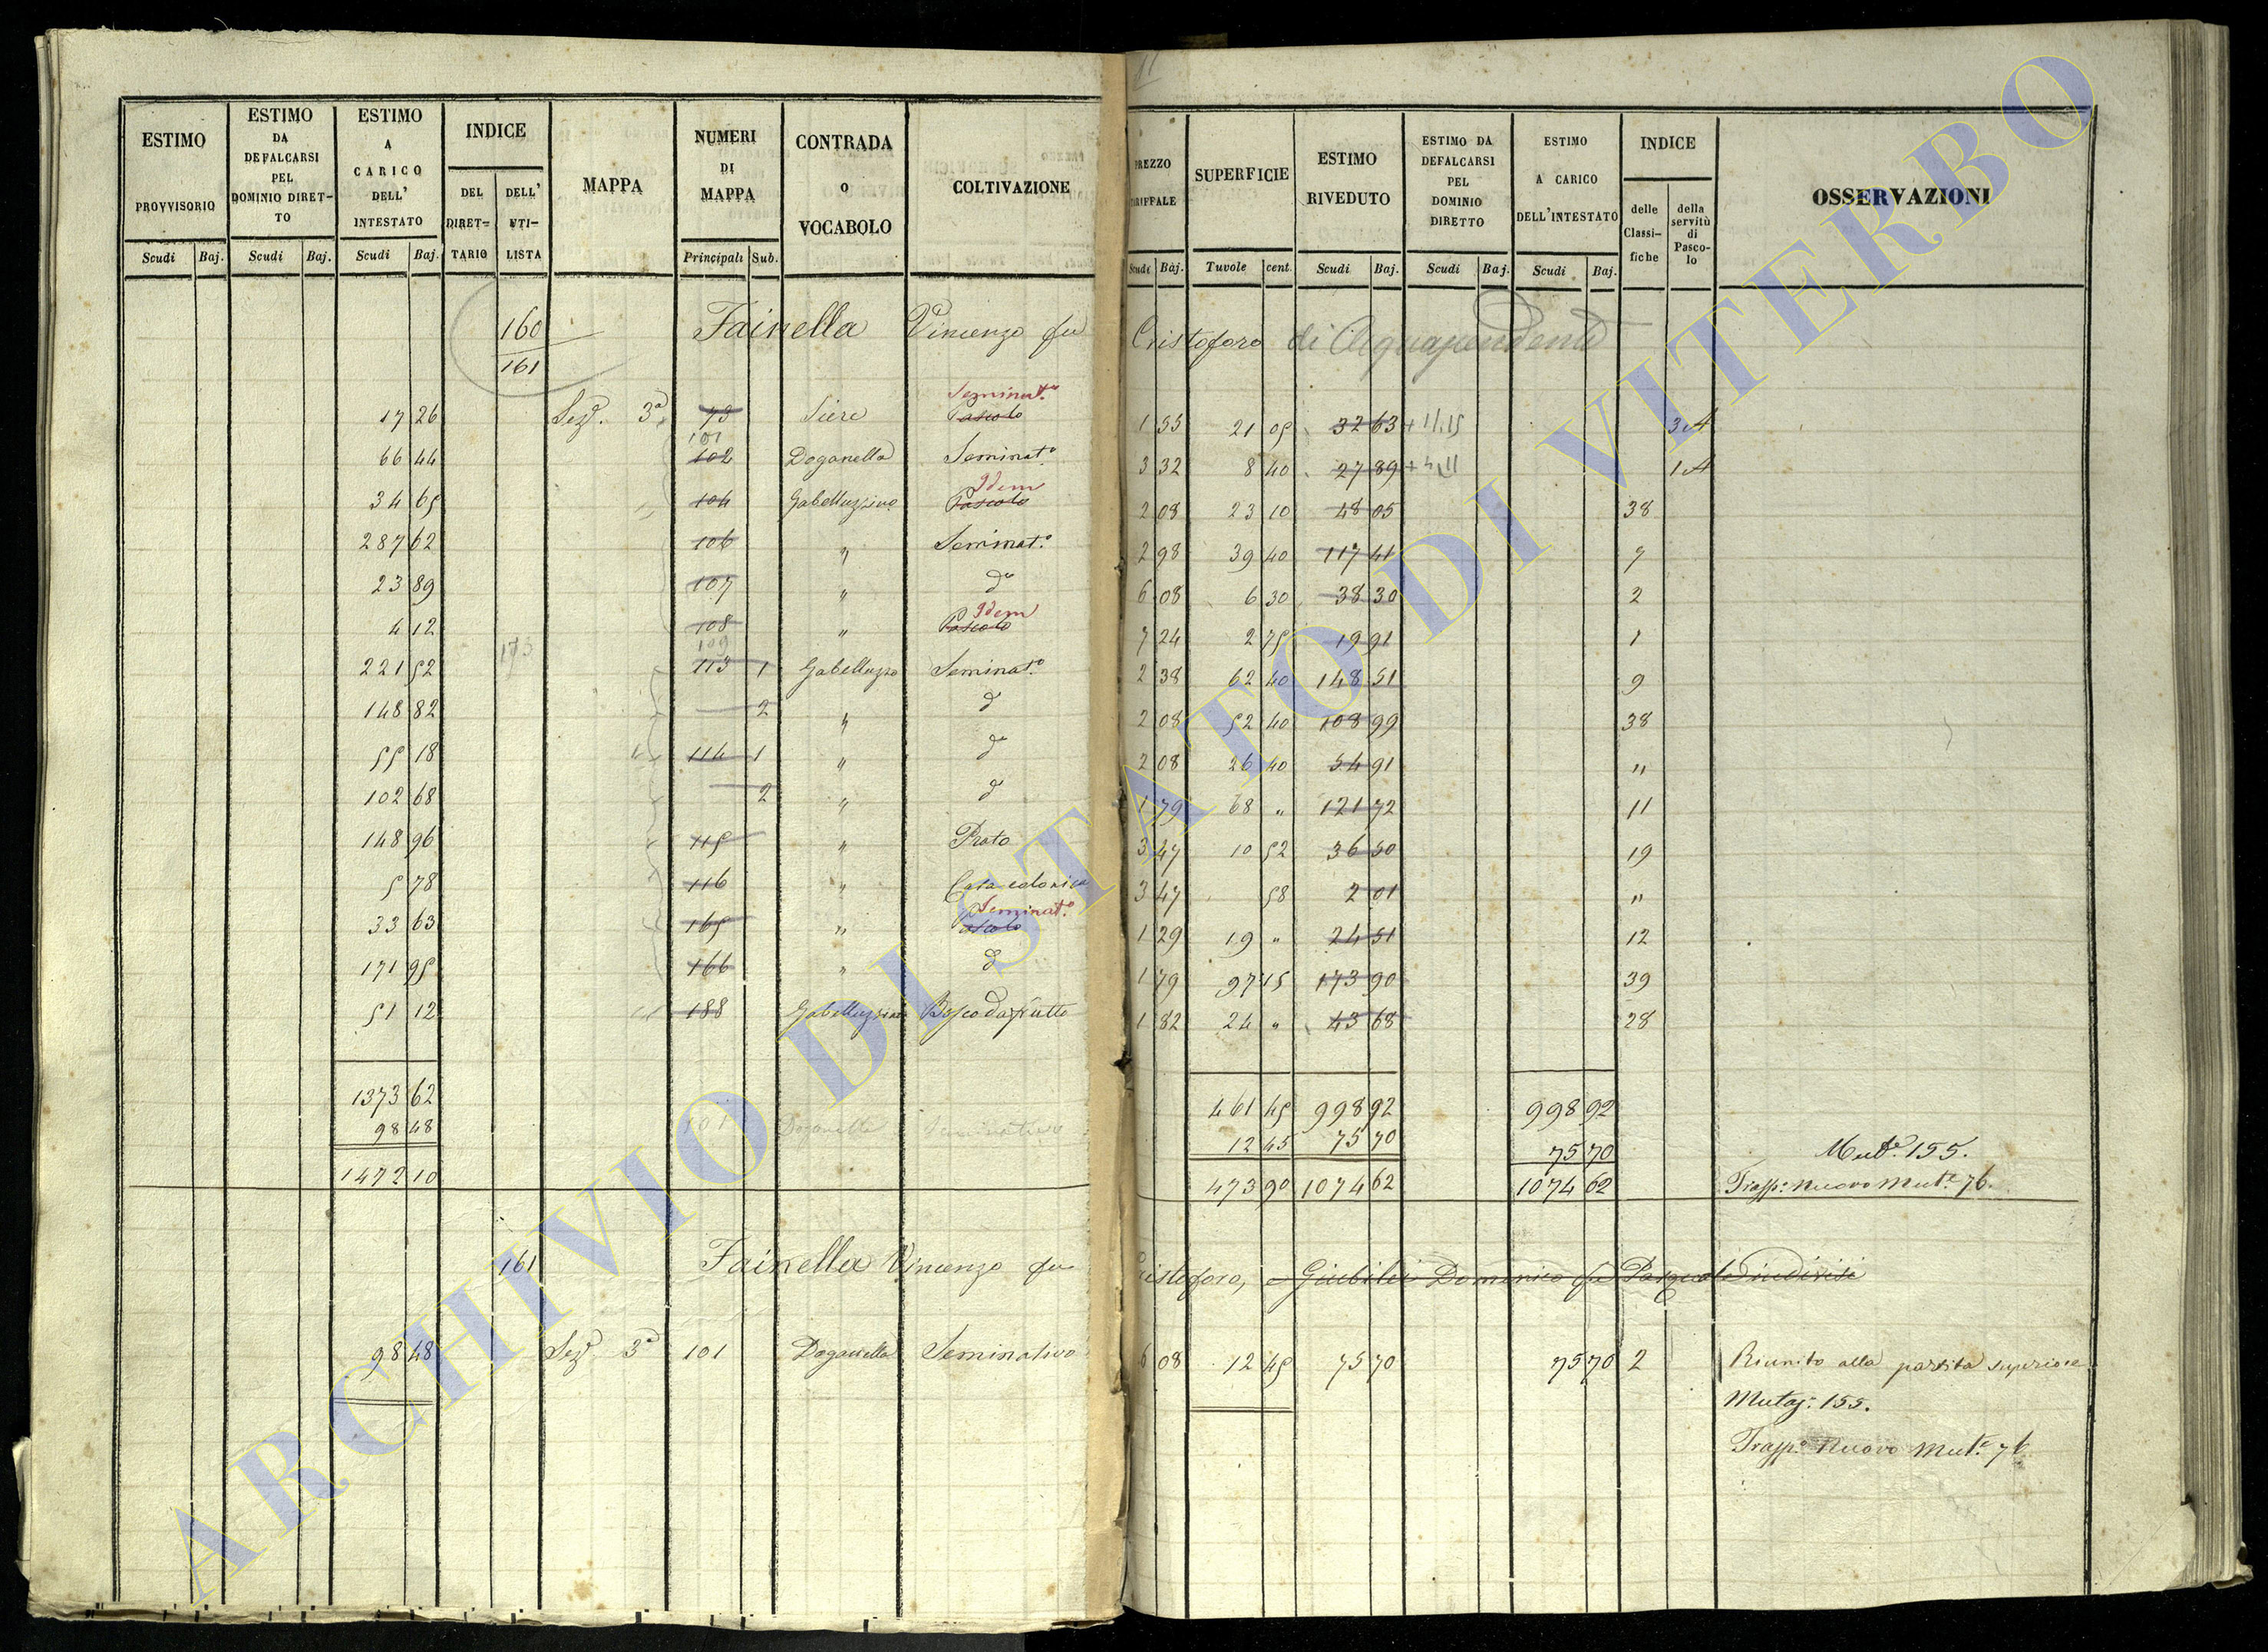 ESTIMO PROVVISORIO Scudi Baj.
ESTIMO DA DEFALCARSI PEL DOMINIO DIRET-TO Scudi Baj.
ESTIMO A CARICO DELL' INTESTATO Scudi Baj.
INDICE DEL DIRET-TARIO DELL' UTI-LISTA
MAPPA
NUMERI DI MAPPA Principali Sub.
CONTRADA O VOCABOLO
COLTIVAZIONE
PREZZO TARIFFALE Scudi Baj.
SUPERFICIE Tavole cent.
ESTIMO RIVEDUTO Scudi Baj.
ESTIMO DA DEFALCARSI PEL DOMINIO DIRETTO Scudi Baj.
ESTIMO A CARICO DELL'INTESTATO Scudi Baj.
INDICE delle Classi-fiche della servitù di Pasco-lo
OSSERVAZIONI
160 Fainella Vincenzo fu Cristoforo di Acquapendente
161
Seminat.o
17 26 Sez. 3a 73 Siere Pascolo 1 55 21 05 32 63 3 A
101
66 44 102 Doganella Seminat.o 3 32 8 40 27 89 1 A
Idem
34 65 104 Gabelluzzino Pascolo 2 08 23 10 48 05 38
287 62 106 " Seminat.o 2 98 39 40 117 41 7
23 89 107 " d.o 6 08 6 30 38 30 2
Idem
4 12 108 " Pascolo 7 24 2 75 19 91 1
173 109
221 52 113 1 Gabelluzzo Seminat.o 2 38 62 40 148 51 9
148 82 2 " d 2 08 52 40 108 99 38
55 18 114 1 " d.o 2 08 26 40 54 91 "
102 68 2 " d 1 79 68 " 121 72 11
148 96 115 " Prato 3 47 10 52 36 50 19
5 78 116 " Casa colonica 3 47 58 2 01 "
Seminat.o
33 63 165 " Pascolo 1 29 19 " 24 51 12
171 95 166 " d 1 79 97 15 173 90 39
51 12 188 Gabelluzzino Bosco da frutto 1 82 24 " 43 68 28
1373 62 461 45 998 92 998 92
98 48 101 Doganella Seminativo 12 45 75 70 75 70 Mut.e 155.
1472 10 473 90 1074 62 1074 62 Trasp.o nuovo Mut.e 76.
161 Fainella Vincenzo fu Cristoforo, e Giubilei Domenico fu Pasquale indivisi
98 48 Sez. 3a 101 Doganella Seminativo 6 08 12 45 75 70 75 70 2 Riunito alla partita superiore
Mutaz: 155.
Trasp.o Nuovo Mut.e 76
ARCHIVIO DI STATO DI VITERBO